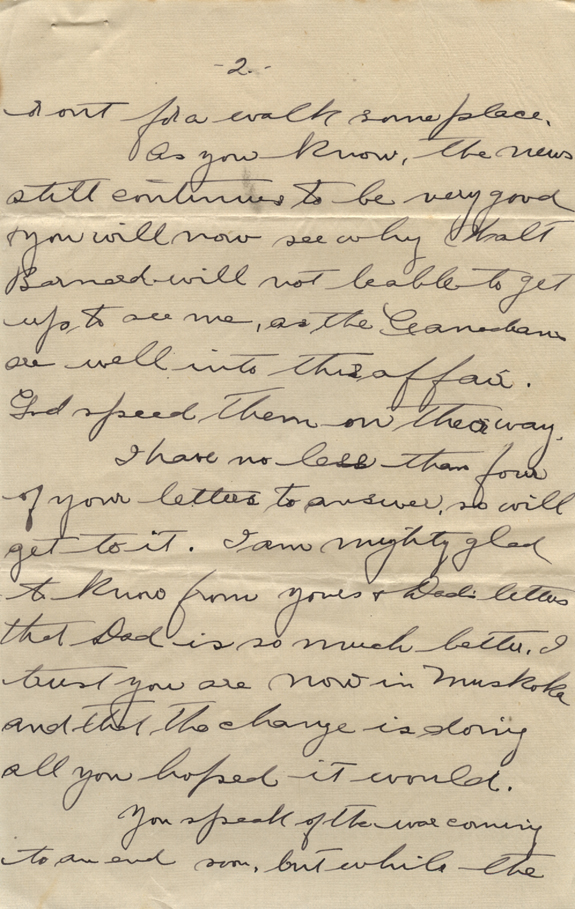 -2-
out for a walk some place.
As you know, the news
still continues to be very good
& you will now see why Walt
Barnard will not be able to get
up to see me, as the Canadians
are well into this affair.
God speed them on their way.
I have no less than four
of your letters to answer, so will
get to it. I am mighty glad
to know from yours & Dad's letters
that Dad is so much better. I
trust you are now in Muskoka
and that the change is doing
all you hoped it would.
You speak of the war coming
to an end soon, but while the